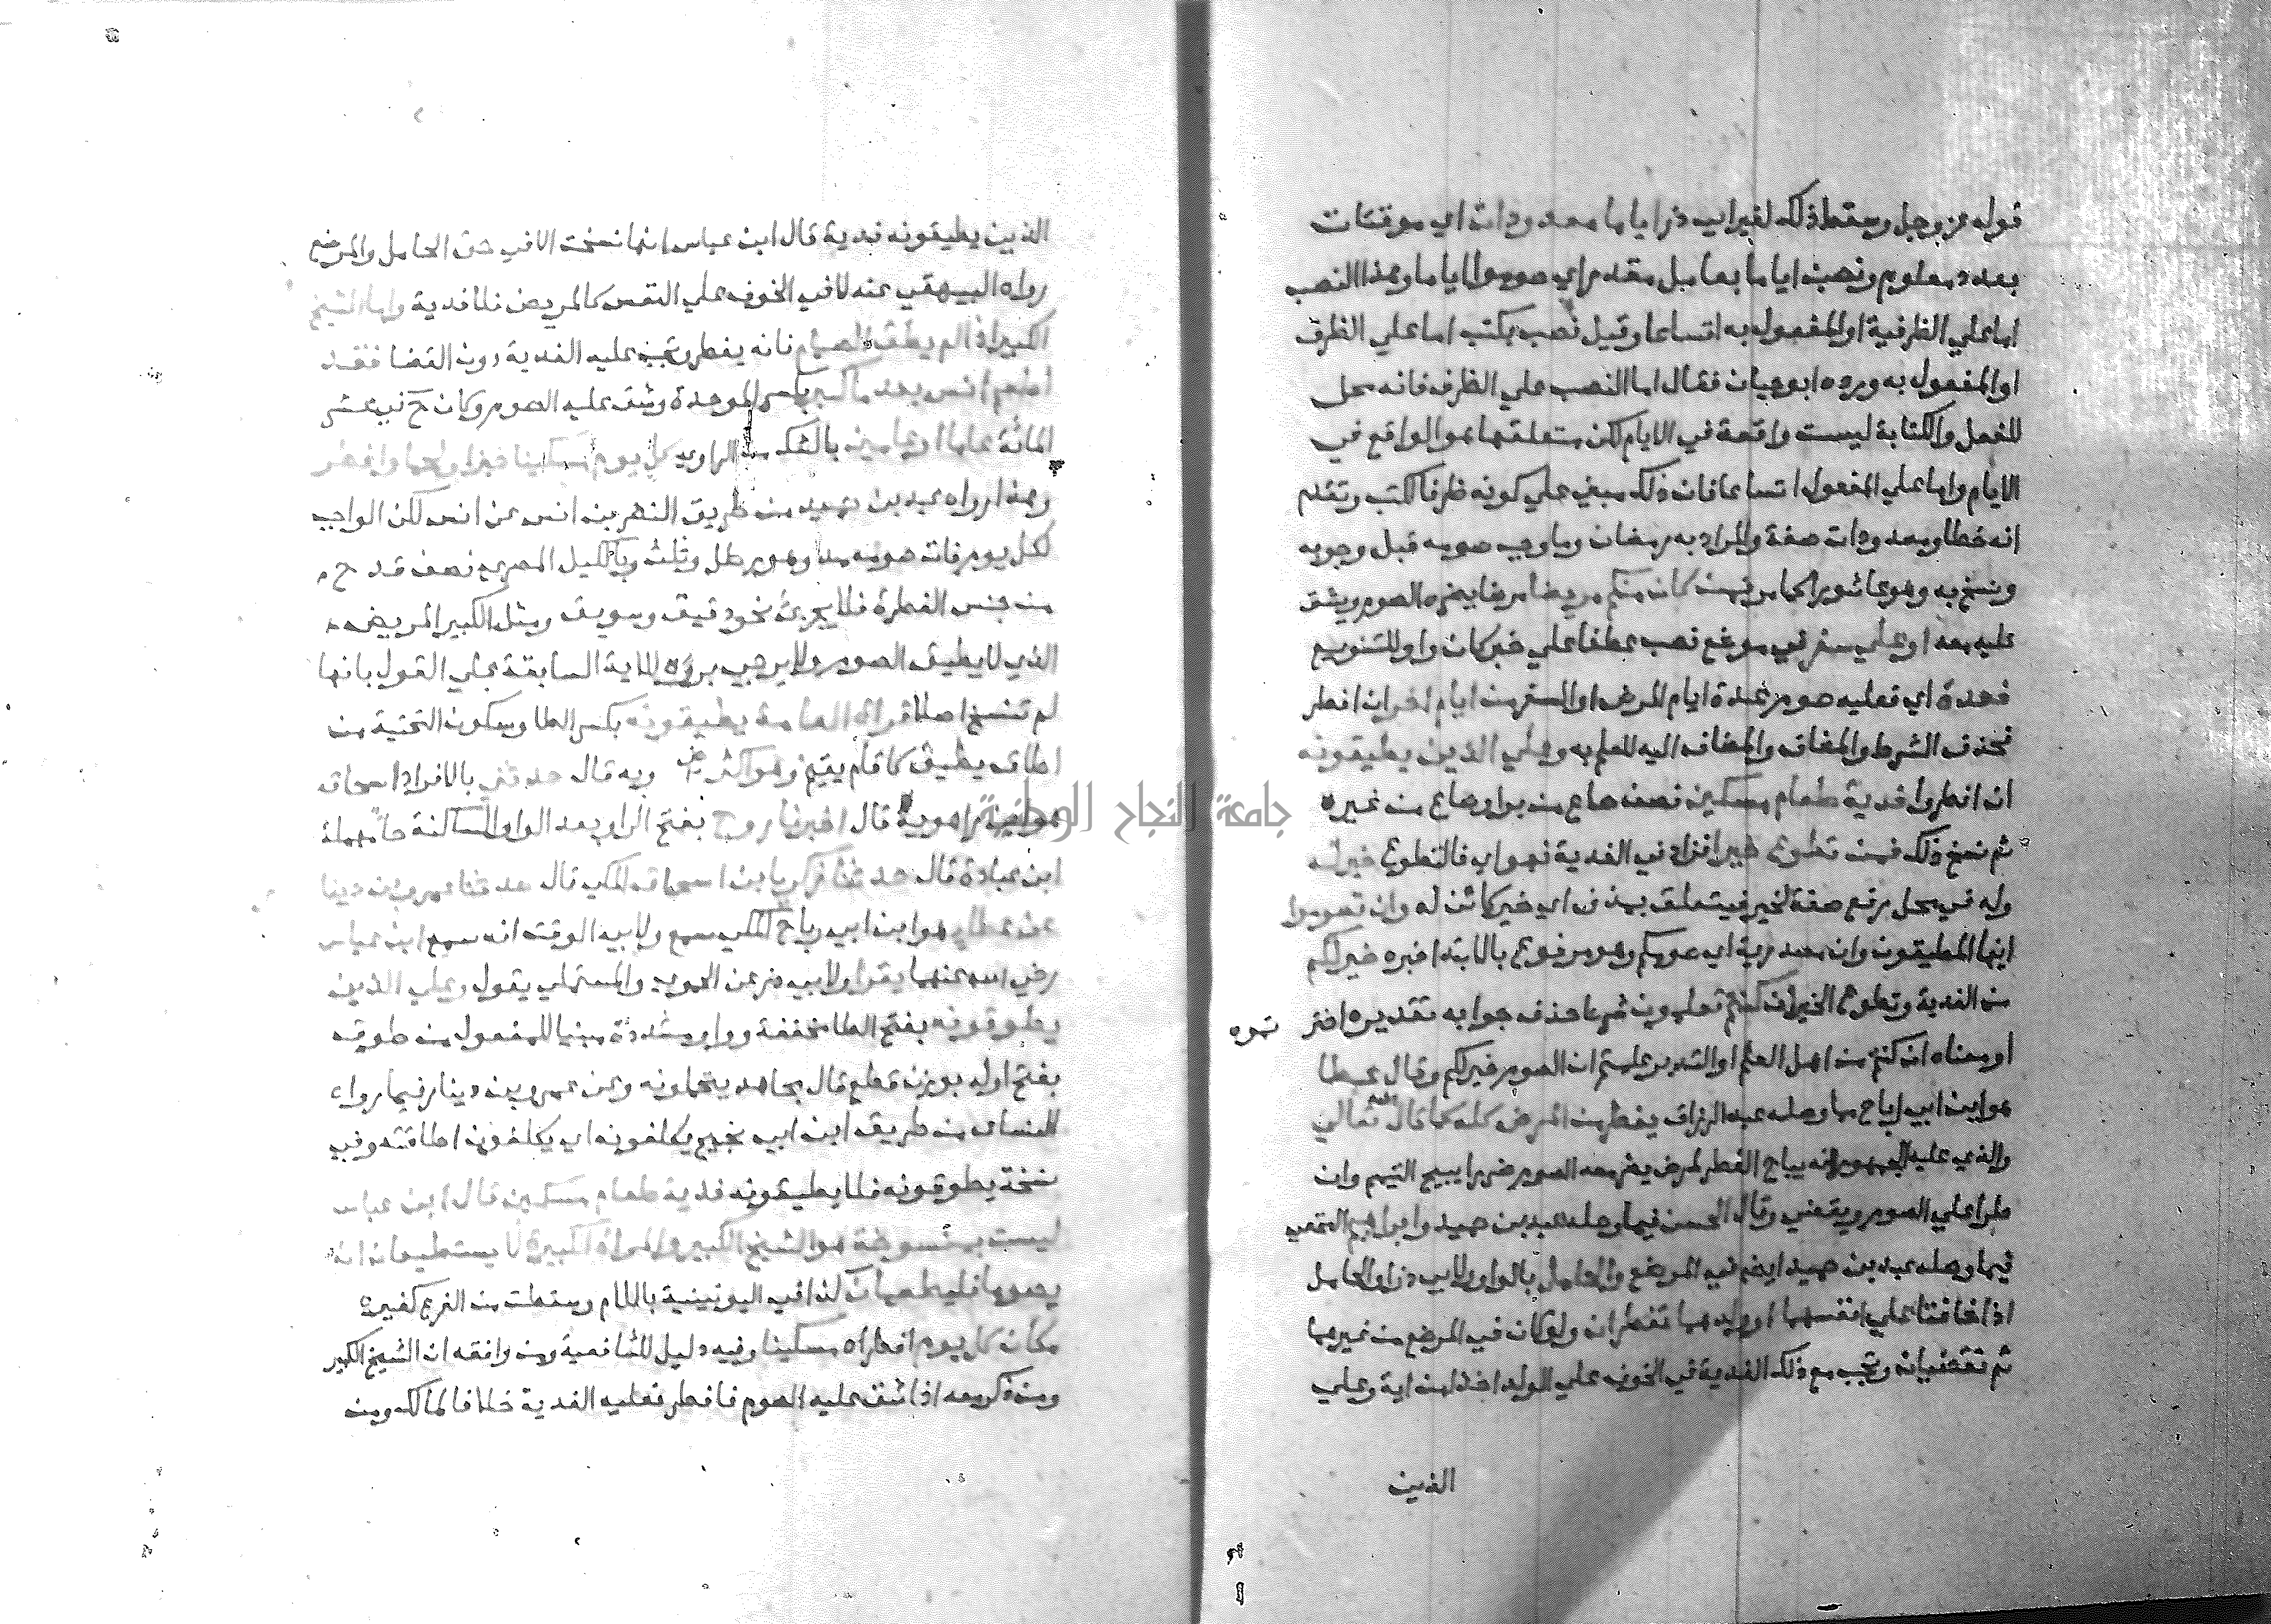 قوله عز وجل وسقط ذلك لغير ابي ذر اياما معدودات اي موقتات
بعدد معلوم ونصب اياما بعامل مقدر اي صوموا اياما وهذا النصب
اما علي الظرفية او المفعول به اتساعا وقيل نصب بكتب اما علي الظرف
او المفعول به ورده ابو حيان فقال اما النصب علي الظرف فانه محل
للفعل والكتابة ليست واقعة في الايام لكن متعلقها هو الواقع في
الايام واما علي المفعول اتساعا فان ذلك مبني علي كونه ظرفا لكتب وتقدم
انه خطا ومعدودات صفة والمراد به رمضان وما وجب صومه قبل وجوبه
ونسخ به وهو عاشورا كما مر فمن كان منكم مريضا مرضا يضره الصوم ويشق
عليه معه او علي سفر في موضع نصب عطفا علي خبر كان واو للتنويع
فعدة اي فعليه صوم عدة ايام المرض او السفر من ايام اخر ان افطر
فحذف الشرط والمضاف والمضاف اليه للعلم به وعلي الذين يطيقونه
ان افطروا فدية طعام مسكين نصف صاع من بر او صاع من غيره
ثم نسخ ذلك فمن تطوع خيرا فزاد في الفدية فهو اي فالتطوع خير له
وله في محل رفع صفة لخير فيتعلق بمحذوف اي خير كائن له وان تصوموا
ايها المطيقون وان مصدرية اي صومكم وهو مرفوع بالابتدا خبره خير لكم
من الفدية وتطوع الخير ان كنتم تعلمون شرط حذف جوابه تقديره اختر تموه
او معناه ان كنتم من اهل العلم او التدبر علمتم ان الصوم خير لكم وقال عطا
هو ابن ابي رباح مما وصله عبد الرزاق يفطر من المرض كله كما قال الله تعالي
والذي عليه الجمهور انه يباح الفطر لمرض يضر معه الصوم ضررا يبيح التيمم وان
طرا علي الصوم ويقضي وقال الحسن فيما وصله عبد بن حميد وابراهيم النخعي
فيما وصله عبد بن حميد ايضا في المرضع والحامل بالواو ولابي ذر او الحامل
اذا خافتا علي انفسهما او ولدهما تفطران ولو كان في المرضع من غيرهما
ثم تقضيان وتجب مع ذلك الفدية في الخوف علي الولد اخذا من اية وعلي
الذين
الذين يطيقونه فدية قال ابن عباس انها نسخت الا في حق الحامل والمرضع
رواه البيهقي عنه لا في الخوف علي النفس كالمريض فلا فدية واما الشيخ
الكبير اذا لم يطق الصيام فانه يفطر وتجب عليه الفدية دون القضا فقد
اطعم انس بعد ما كبر بكسر الموحدة وشق عليه الصوم وكان ح في عشر
المائة عاما او عامين بالشك من الراوي كل يوم مسكينا خبزا ولحما وافطر
وهذا رواه عبد بن حميد من طريق النضر بن انس عن انس لكن الواجب
لكل يوم فات صومه مد وهو رطل وثلث وبالكيل المصري نصف قدح
من جنس الفطرة فلا يجزئ نحو دقيق وسويق ومثل الكبير المريض
الذي لا يطيق الصوم ولا يرجي برؤه للاية السابقة علي القول بانها
لم تنسخ اصلا قراة العامة يطيقونه بكسر الطا وسكون التحتية من
اطاق يطيق كاقام يقيم وهو اكثر وبه قال حدثني بالافراد اسحاق
هو ابن راهوية قال اخبرنا روح بفتح الرا وبعد الواو الساكنة حا مهملة
ابن عبادة قال حدثنا زكريا بن اسحاق المكي قال حدثنا عمرو بن دينار
عن عطا هو ابن ابي رباح المكي سمع ولابي الوقت انه سمع ابن عباس
رضي الله عنهما يقرا ولابي ذر عن الحموي والمستملي يقول وعلي الذين
يطوقونه بفتح الطا مخففة وواو مشددة مبنيا للمفعول من طوق
بفتح اوله بوزن قطع قال مجاهد يتحملونه وعن عمرو بن دينار فيما رواه
النساي من طريق ابن ابي نجيح يكلفونه اي يكلفون اطاقته وفي
نسخة يطوقونه فلا يطيقونه فدية طعام مسكين قال ابن عباس
ليست بمنسوخة هو الشيخ الكبير والمراة الكبيرة لا يستطيعان ان
يصوما فليطعمان كذا في اليونينية باللام وسقطت من الفرع كغيره
مكان كل يوم افطراه مسكينا وفيه دليل للشافعية ومن وافقه ان الشيخ الكبير
ومن ذكر معه اذا شق عليه الصوم فافطر فعليه الفدية خلافا لمالك ومن
جامعة النجاح الوطنية